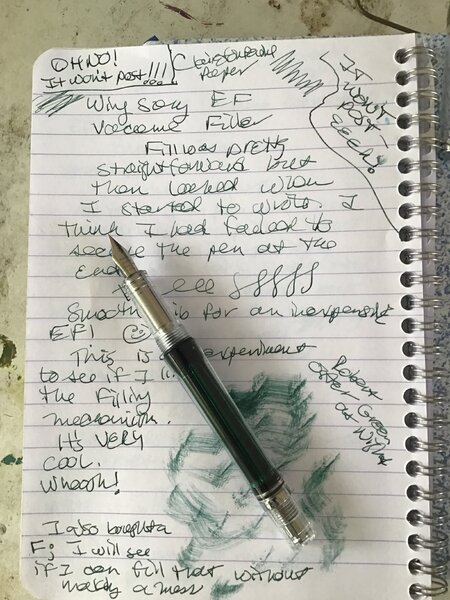 OH NO!
It won't post!!!
Clairefontaine
Paper
IT
WON'T
POST
EEEK!
Wing Sung EF
Vacuum Filler
Fill was pretty
straightforward but
then leaked when
I started to write. I
think I had failed to
secure the pen at the
end
Smooth is for an inexpensive
EF!
This is experiment
to see if I li
the filling
mechanism.
It's VERY
cool.
Whoosh!
Robert
Oster Green
at Night
I also bought a
F; I will see
if I can fill that without
making a mess